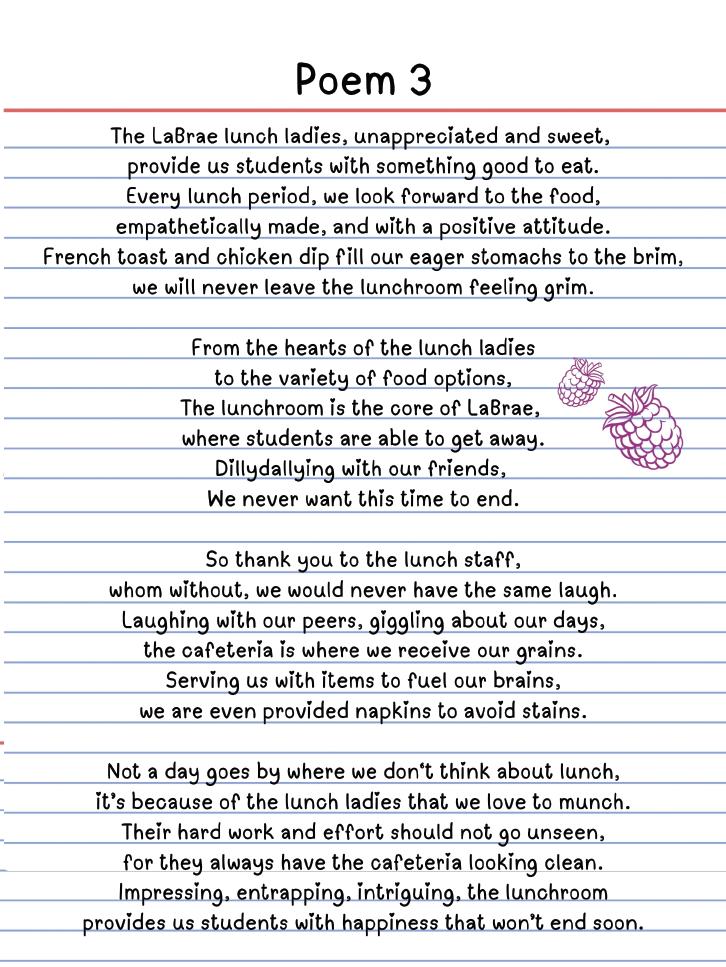 Poem 3
The LaBrae lunch ladies, unappreciated and sweet,
provide us students with something good to eat.
Every lunch period, we look forward to the food,
empathetically made, and with a positive attitude.
French toast and chicken dip fill our eager stomachs to the brim,
we will never leave the lunchroom feeling grim.
From the hearts of the lunch ladies
to the variety of food options,
The lunchroom is the core of LaBrae,
where students are able to get away.
Dillydallying with our friends,
We never want this time to end.
So thank you to the lunch staff,
whom without, we would never have the same laugh.
Laughing with our peers, giggling about our days,
the cafeteria is where we receive our grains.
Serving us with items to fuel our brains,
we are even provided napkins to avoid stains.
Not a day goes by where we don‘t think about lunch,
it’s because of the lunch ladies that we love to munch.
Their hard work and effort should not go unseen,
for they always have the cafeteria looking clean.
Impressing, entrapping, intriguing, the lunchroom
provides us students with happiness that won’t end soon.